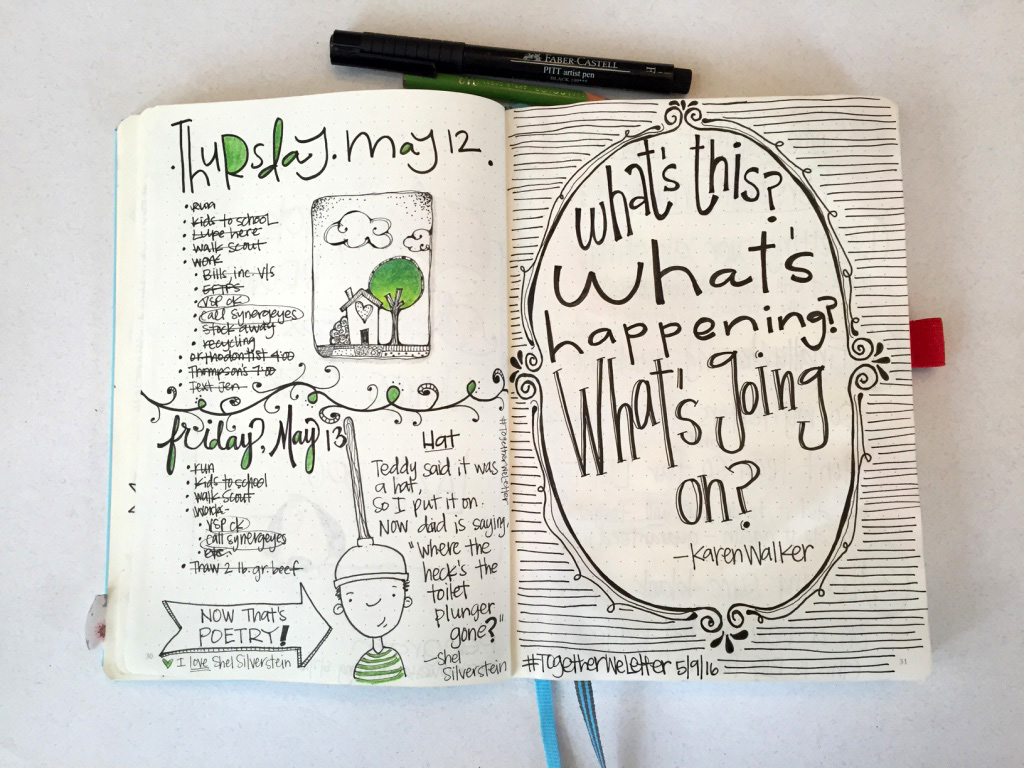 FABER-CASTELL
PITT artist pen
Thursday. May 12.
• Run
• Kids to school
• Lupe here
• Walk Scout
• Work
• Bills, inc. V/S
• VSP ck
• call Synergeyes
• Stock away
• recycling
• Orthodontist 4:00
• Thompson's 7:00
• Text Jen
friday, May 13
• Run
• Kids to school
• Walk Scout
• Work
• VSP ck
• call synergeyes
• Thaw 2 lb. gr. beef
NOW That's
POETRY!
I love Shel Silverstein
30
#TogetherWeLetter
Hat
Teddy said it was
a hat,
So I put it on.
Now dad is saying,
"where the
heck's the
toilet
plunger
gone?"
—Shel
Silverstein
What's this?
What's
happening?
What's going
on?
—Karen Walker
#TogetherWeLetter 5/9/16
31